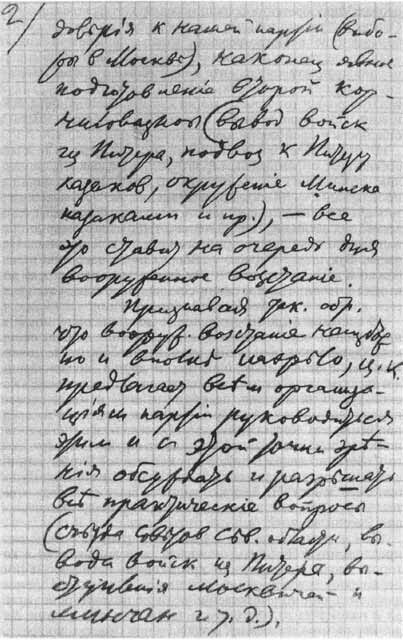 2/
довѣрія к нашей партіи (выбо-
ры в Москвѣ), наконец явное
подготовленіе второй кор-
ниловщины (вывод войск
из Питера, подвоз к Питеру
казаков, окруженіе Минска
казаками и пр.), — все
это ставит на очередь дня
вооруженное возстаніе.
Признавая так. обр.
что вооруж. возстаніе неизбѣж
но и вполнѣ назрѣло, Ц.К.
предлагает всѣм организа-
ціям партіи руководиться
этим и с этой точки зрѣ-
нія обсуждать и разрѣшать
всѣ практическіе вопросы
(съѣзда совѣтов сѣв. области, вы-
вода войск из Питера, вы-
ступленія москвичей и
минчан и т.д.).